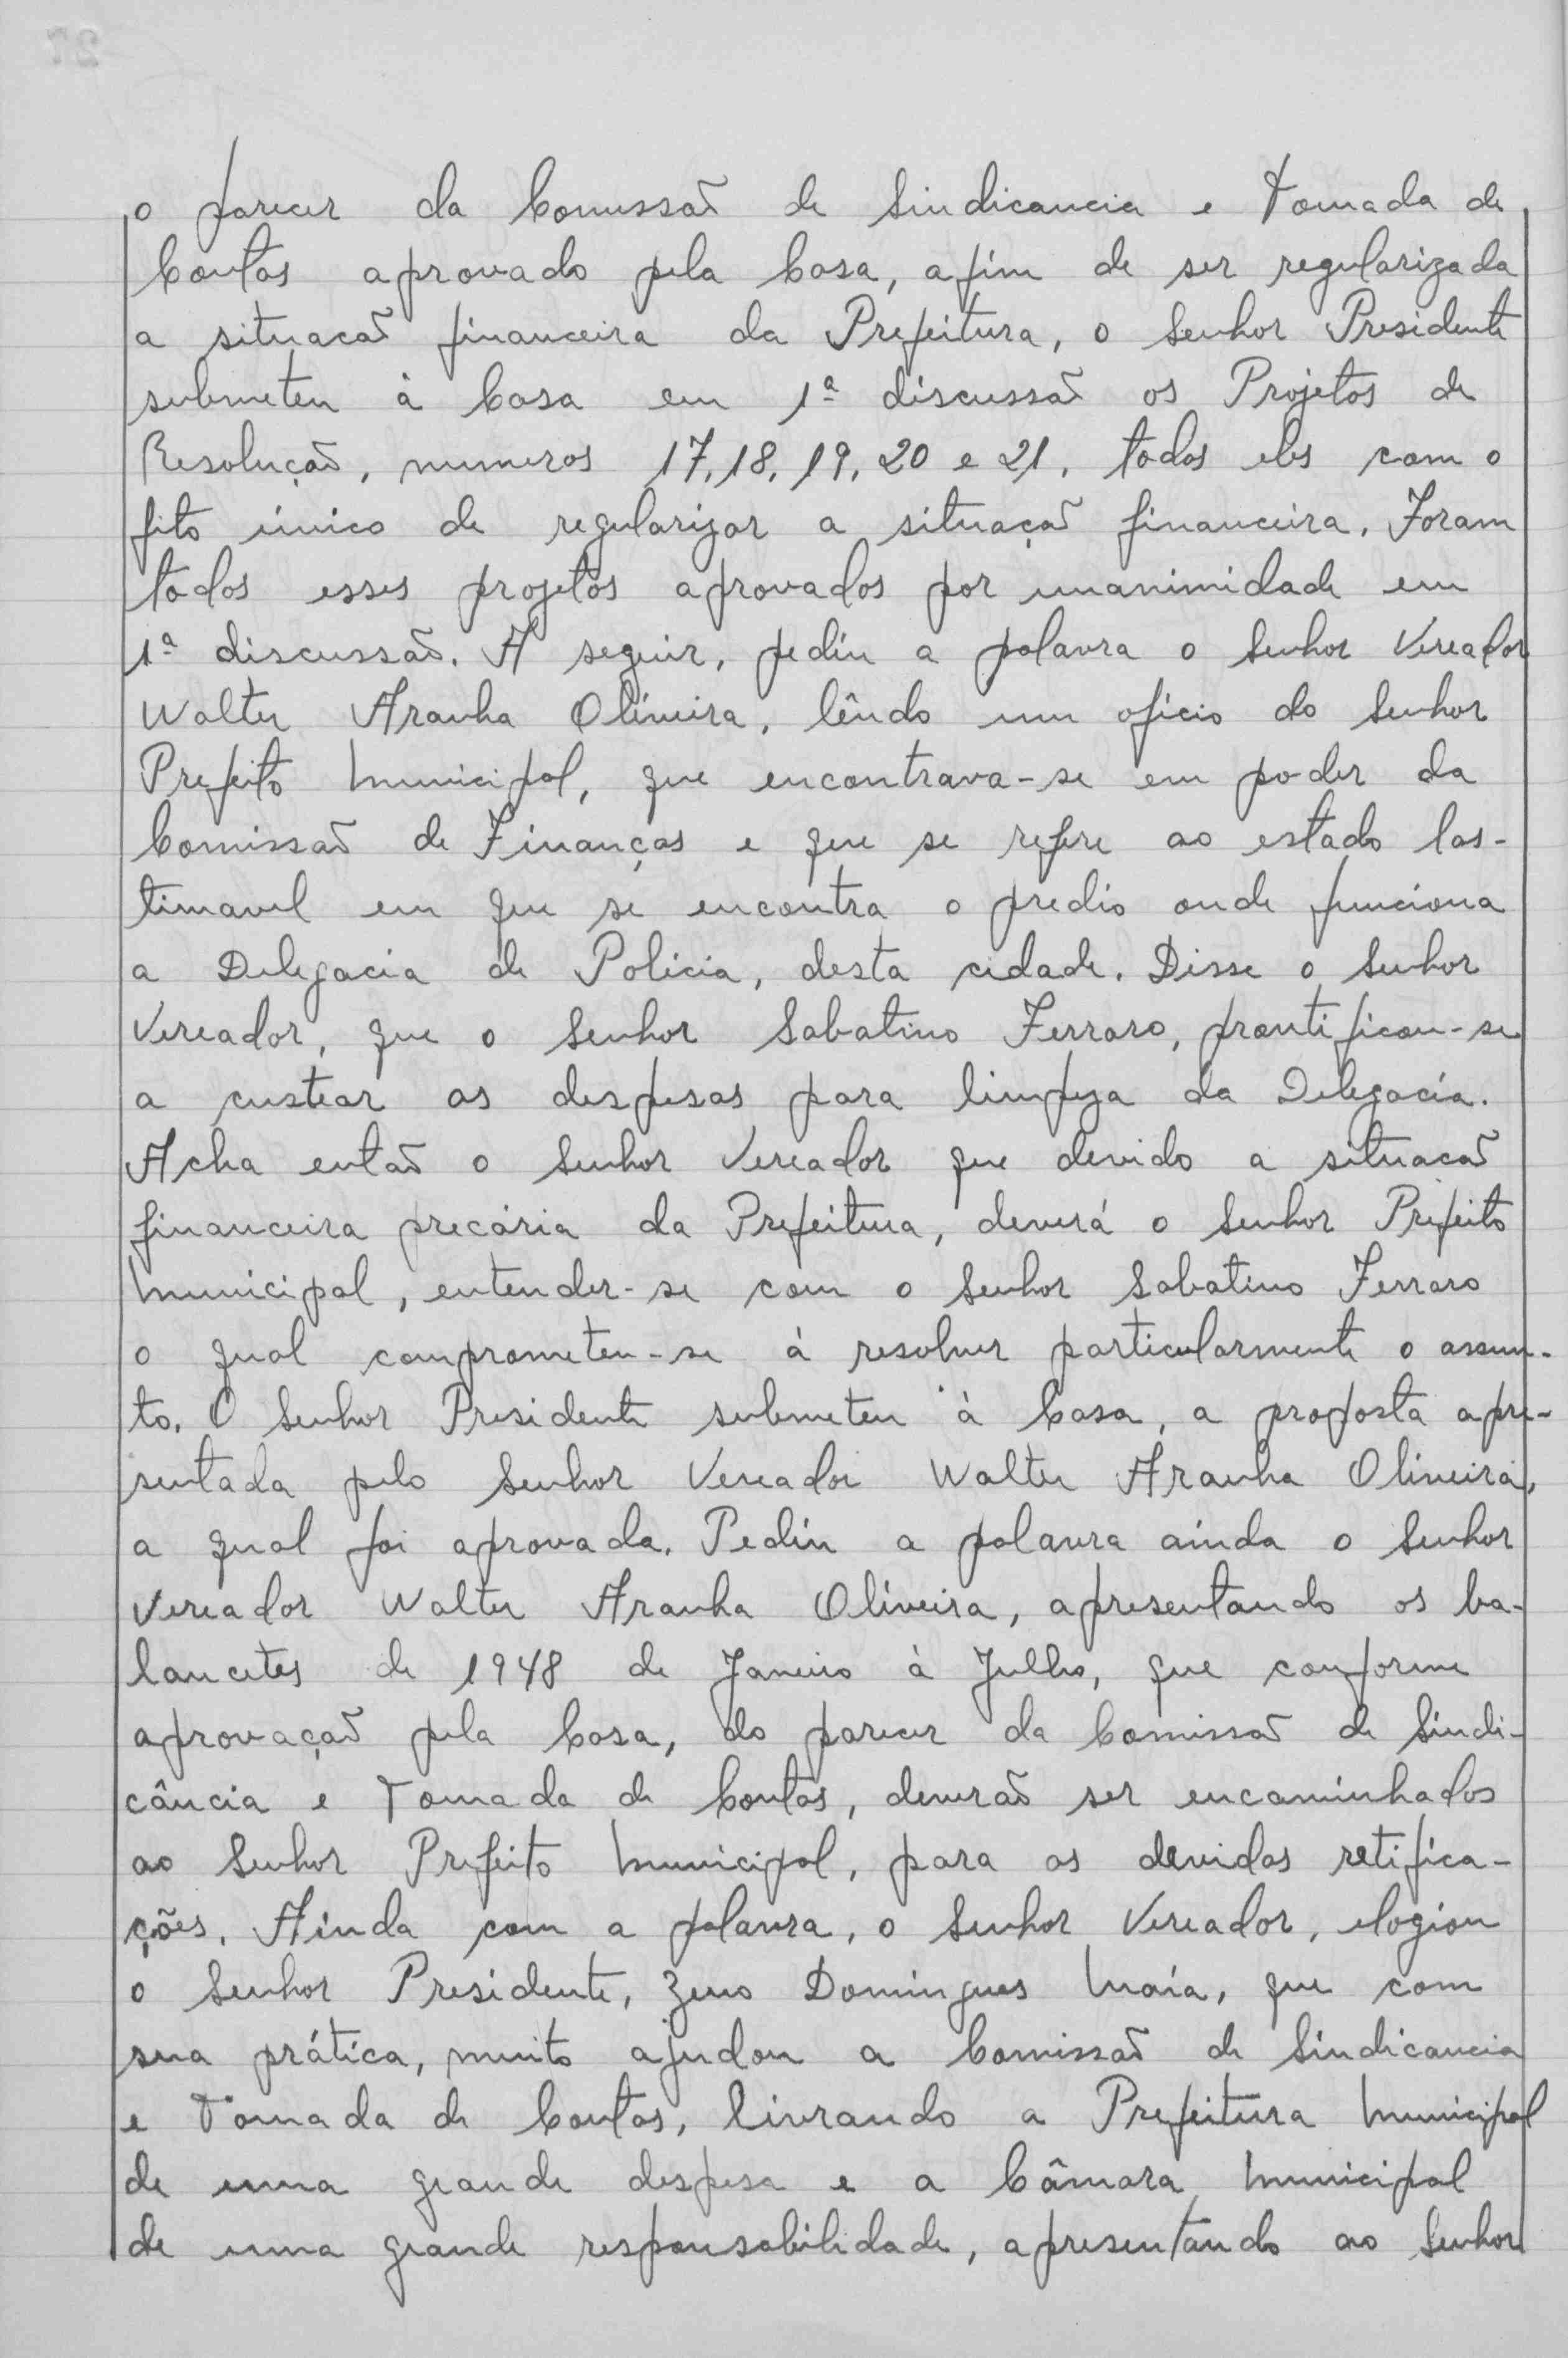 o parecer da Comissão de Sindicancia e Tomada de
Contas aprovado pela Casa, afim de ser regularizada
a situacaõ financeira da Prefeitura, o Senhor Presidente
submeteu à Casa em 1ª discussaõ os Projetos de
Resoluçaõ, numeros 17, 18, 19, 20 e 21, todos eles com o
fito único de regularizar a situaçaõ financeira. Foram
todos esses projetos aprovados por unanimidade em
1ª discussaõ. A seguir, pediu a palavra o Senhor Vereador
Walter Aranha Oliveira, lêndo um oficio do Senhor
Prefeito Municipal, que encontrava-se em poder da
Comissaõ de Finanças e que se refere ao estado las-
timavel em que se encontra o predio onde funciona
a Delegacia de Policia, desta cidade. Disse o Senhor
Vereador, que o Senhor Sabatino Ferraro, prontificou-se
a custear as despesas para limpeza da Delegacia.
Acha entaõ o Senhor Vereador que devido a situacaõ
financeira precária da Prefeitura, deverá o Senhor Prefeito
Municipal, entender-se com o Senhor Sabatino Ferraro
o qual comprometeu-se à resolver particularmente o assun-
to. O Senhor Presidente submeteu à Casa, a proposta apre-
sentada pelo Senhor Vereador Walter Aranha Oliveira,
a qual foi aprovada. Pediu a palavra ainda o Senhor
Vereador Walter Aranha Oliveira, apresentando os ba-
lancetes de 1948 de Janeiro à Julho, que conforme
aprovaçaõ pela Casa, do parecer da Comissaõ de Sindi-
cância e Tomada de Contas, deveraõ ser encaminhados
ao Senhor Prefeito Municipal, para as devidas retifica-
ções. Ainda com a palavra, o Senhor Vereador, elogiou
o Senhor Presidente, Zeno Domingues Maia, que com
sua prática, muito ajudou a Comissaõ de Sindicancia
e Tomada de Contas, livrando a Prefeitura Municipal
de uma grande despesa e a Câmara Municipal
de uma grande responsabilidade, apresentando ao Senhor